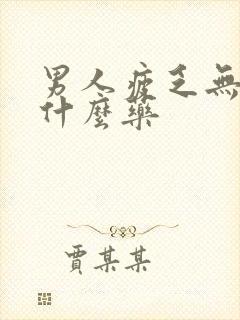 男人疲乏無
什麼藥
賈某某